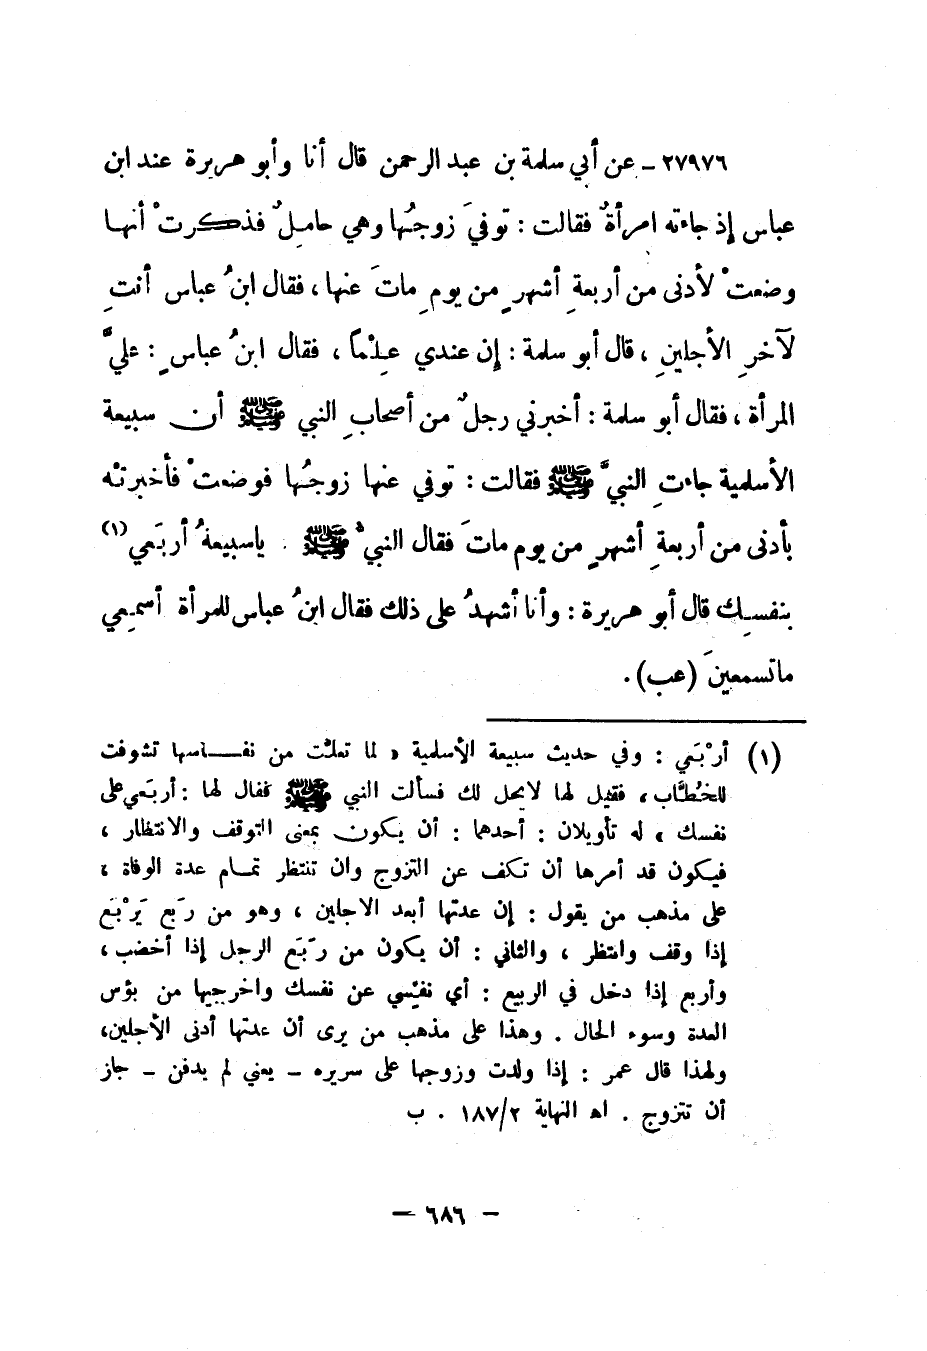 ٢٧٩٧٦ ـ عن أبي سلمة بن عبد الرحمن قال أنا وأبو هريرة عند ابن
عباس إذ جاءته امرأةٌ فقالت : توفيَ زوجُها وهي حاملٌ فذكرتْ أنها
وضعتْ لأدنى من أربعةِ أشهرٍ من يومِ ماتَ عنها ، فقال ابنُ عباس أنتِ
لآخرِ الأجلينِ ، قال أبو سلمة : إن عندي عِلْماً ، فقال ابنُ عباسٍ : عليَّ
المرأة ، فقال أبو سلمة : أخبرني رجلٌ من أصحابِ النبي ﷺ أن سبيعة
الأسلمية جاءتِ النبيَّ ﷺ فقالت : توفي عنها زوجُها فوضعتْ فأخبرتْه
بأدنى من أربعةِ أشهرٍ من يوم ماتَ فقال النبيُّ ﷺ ياسبيعةُ أربَعي(١)
بنفسِك قال أبو هريرة : وأنا أشهدُ على ذلك فقال ابنُ عباس للمرأة أسمعِي
ماتسمعينَ (عب) .
(١) أرْبَعي : وفي حديث سبيعة الأسلمية « لما تعلَّت من نفاسها تشوفت
للخُطَّاب ، فقيل لها لايحل لك فسألت النبي ﷺ فقال لها : أربَعي على
نفسك » له تأويلان : أحدهما : أن يكون بمعنى التوقف والانتظار ،
فيكون قد أمرها أن تكف عن التزوج وان تنتظر تمام عدة الوفاة ،
على مذهب من يقول : إن عدتها أبعد الاجلين ، وهو من رَبع يَرْبَع
إذا وقف وانتظر ، والثاني : أن يكون من رَبَع الرجل إذا أخضب ،
وأربع إذا دخل في الربيع : أي نفِّسي عن نفسك واخرجيها من بؤس
العدة وسوء الحال . وهذا على مذهب من يرى أن عدتها أدنى الأجلين،
ولهذا قال عمر : إذا ولدت وزوجها على سريره ـ يعني لم يدفن ـ جاز
أن تتزوج . اه النهاية ١٨٧/٢ . ب
— ٦٨٦ —